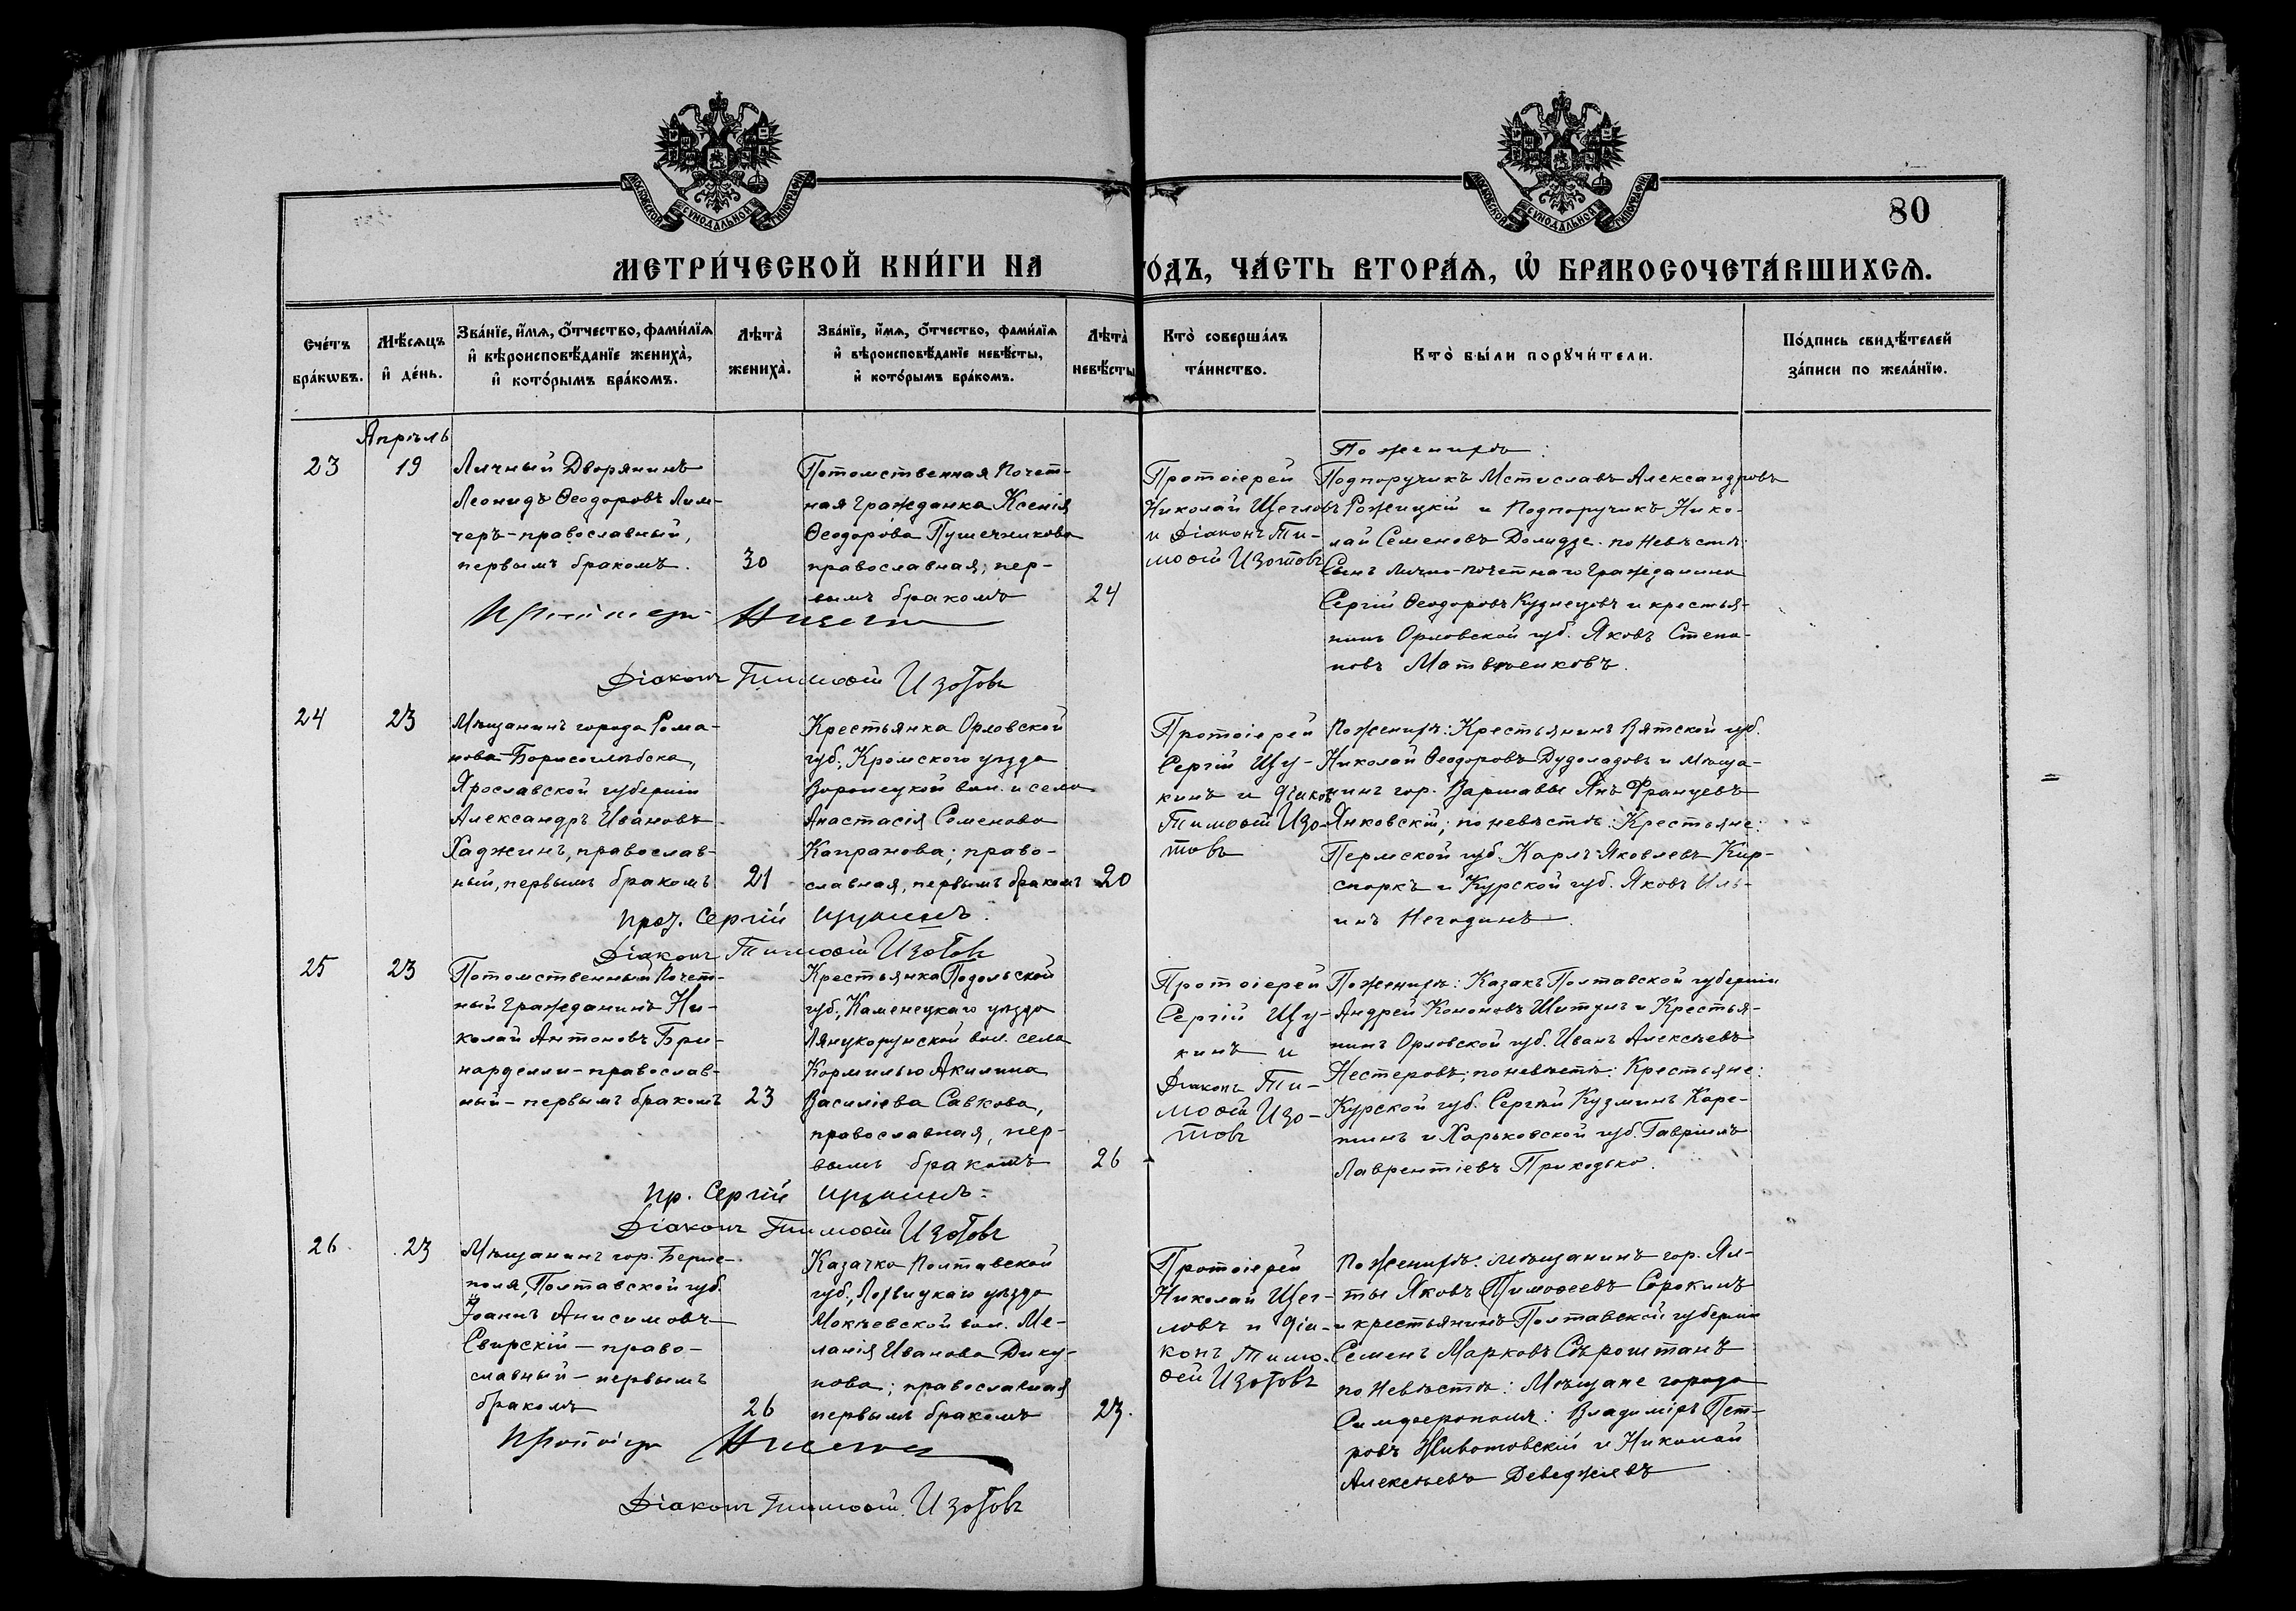 МОСКОВСКОЙ СѴНОДАЛЬНОЙ ТИПОГРАФІИ
МОСКОВСКОЙ СѴНОДАЛЬНОЙ ТИПОГРАФІИ
80
МЕТРИ́ЧЕСКОЙ КНИ́ГИ НА
ГО́ДЪ, ЧА́СТЬ ВТОРА́Ѧ, Ѡ҆ БРАКОСОЧЕТА́ВШИХСѦ.
Сче́тъ
бра́кѡвъ.
Мѣ́сѧцъ
и҆ де́нь.
Зва́нїе, и҆́мѧ, ѻ҆́тчество, фами́лїѧ
и҆ вѣроисповѣ́данїе жениха̀,
и҆ кото́рымъ бра́комъ.
Лѣта̀
жениха̀.
Зва́нїе, и҆́мѧ, ѻ҆́тчество, фами́лїѧ
и҆ вѣроисповѣ́данїе невѣ́сты,
и҆ кото́рымъ бра́комъ.
Лѣта̀
невѣ́сты
Кто̀ соверша́лъ
та́инство.
Кто̀ бы́ли порꙋчи́тели.
По́дпись свидѣ́телей
за́писи по жела́нїю.
Апрѣль
23
19
Личный Дворянинъ
Леонидъ Ѳеодоровъ Лим-
черъ-православный,
первымъ бракомъ.
30
Потомственная Почет-
ная Гражданка Ксенія
Ѳеодорова Пушечникова
православная; пер-
вымъ бракомъ
24
Протоіерей
Николай Щегловъ
и Діаконъ Ти-
моѳей Изотовъ
По женихѣ:
Подпоручикъ Мстиславъ Александровъ
Рожицкій и Подпоручикъ Нико-
лай Семеновъ Долидзе. по Невѣстѣ:
Сынъ Лично-почетнаго Гражданина
Сергій Ѳеодоровъ Кузнецовъ и крестья-
нинъ Орловской губ. Яковъ Степа-
новъ Матвѣенковъ.
Діаконъ Тимоѳей Изотовъ
24
23
Мѣщанинъ города Рома-
нова-Борисоглѣбска,
Ярославской губерніи
Александръ Ивановъ
Хаджинъ, православ-
ный, первымъ бракомъ
21
Крестьянка Орловской
губ., Кромского уѣзда
Воронецкой вол. и села
Анастасія Семенова
Капранова; право-
славная, первымъ бракомъ
20
Протоіерей
Сергій Щу-
кинъ и діаконъ
Тимоѳей Изо-
товъ
По женихѣ: Крестьянинъ Вятской губ.
Николай Ѳеодоровъ Дудоладовъ и Мѣща-
нинъ гор. Варшавы Янъ Францевъ
Янковскій; по невѣстѣ: Крестьяне:
Пермской губ. Карлъ Яковлевъ Кир-
споркъ и Курской губ. Яковъ Иль-
инъ Негодинъ.
Прот. Сергій Щукинъ.
Діаконъ Тимоѳей Изотовъ
25
23
Потомственный Почет-
ный Гражданинъ Ни-
колай Антоновъ Бри-
нарделли-православ-
ный-первымъ бракомъ
23
Крестьянка Подольской
губ., Каменецкаго уѣзда
Лянцкорунской вол. села
Кормилью Акилина
Василіева Савкова,
православная, пер-
вымъ бракомъ
26
Протоіерей
Сергій Щу-
кинъ и
Діаконъ Ти-
моѳей Изо-
товъ
По женихѣ: Казакъ Полтавской губерніи
Андрей Кононовъ Шитунъ и Крестья-
нинъ Орловской губ. Иванъ Алексѣевъ
Нестеровъ; по невѣстѣ: Крестьяне:
Курской губ. Сергѣй Кузминъ Каре-
нинъ и Харьковской губ. Гавріилъ
Лаврентіевъ Приходько.
Пр. Сергій Щукинъ.
Діаконъ Тимоѳей Изотовъ
26
23
Мѣщанинъ гор. Бере-
поля, Полтавской губ.
Іоаннъ Анисимовъ
Свирскій-право-
славный-первымъ
бракомъ
26
Казачка Полтавской
губ., Лохвицкаго уѣзда
Мокѣевской вол. Ме-
ланія Иванова Дику-
нова; православная
первымъ бракомъ
23.
Протоіерей
Николай Щег-
ловъ и діа-
конъ Тимо-
ѳей Изотовъ
По Женихѣ: мѣщанинъ гор. Ял-
ты Яковъ Тимоѳеевъ Сорокинъ
и крестьянинъ Полтавской губерніи
Семенъ Марковъ Сѣроштанъ
по Невѣстѣ: Мѣщане города
Симферополя: Владиміръ Пет-
ровъ Животовскій и Николай
Алексѣевъ Деведжіевъ
Протоіер
Діаконъ Тимоѳей Изотовъ